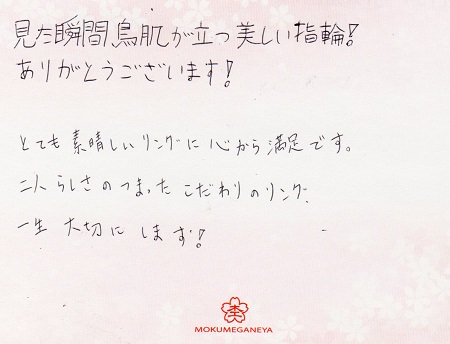 見た瞬間鳥肌が立つ美しい指輪!
ありがとうございます!
とても素晴しいリングに心から満足です。
二人らしさのつまったこだわりのリング
一生大切にします!
杢
MOKUMEGANEYA